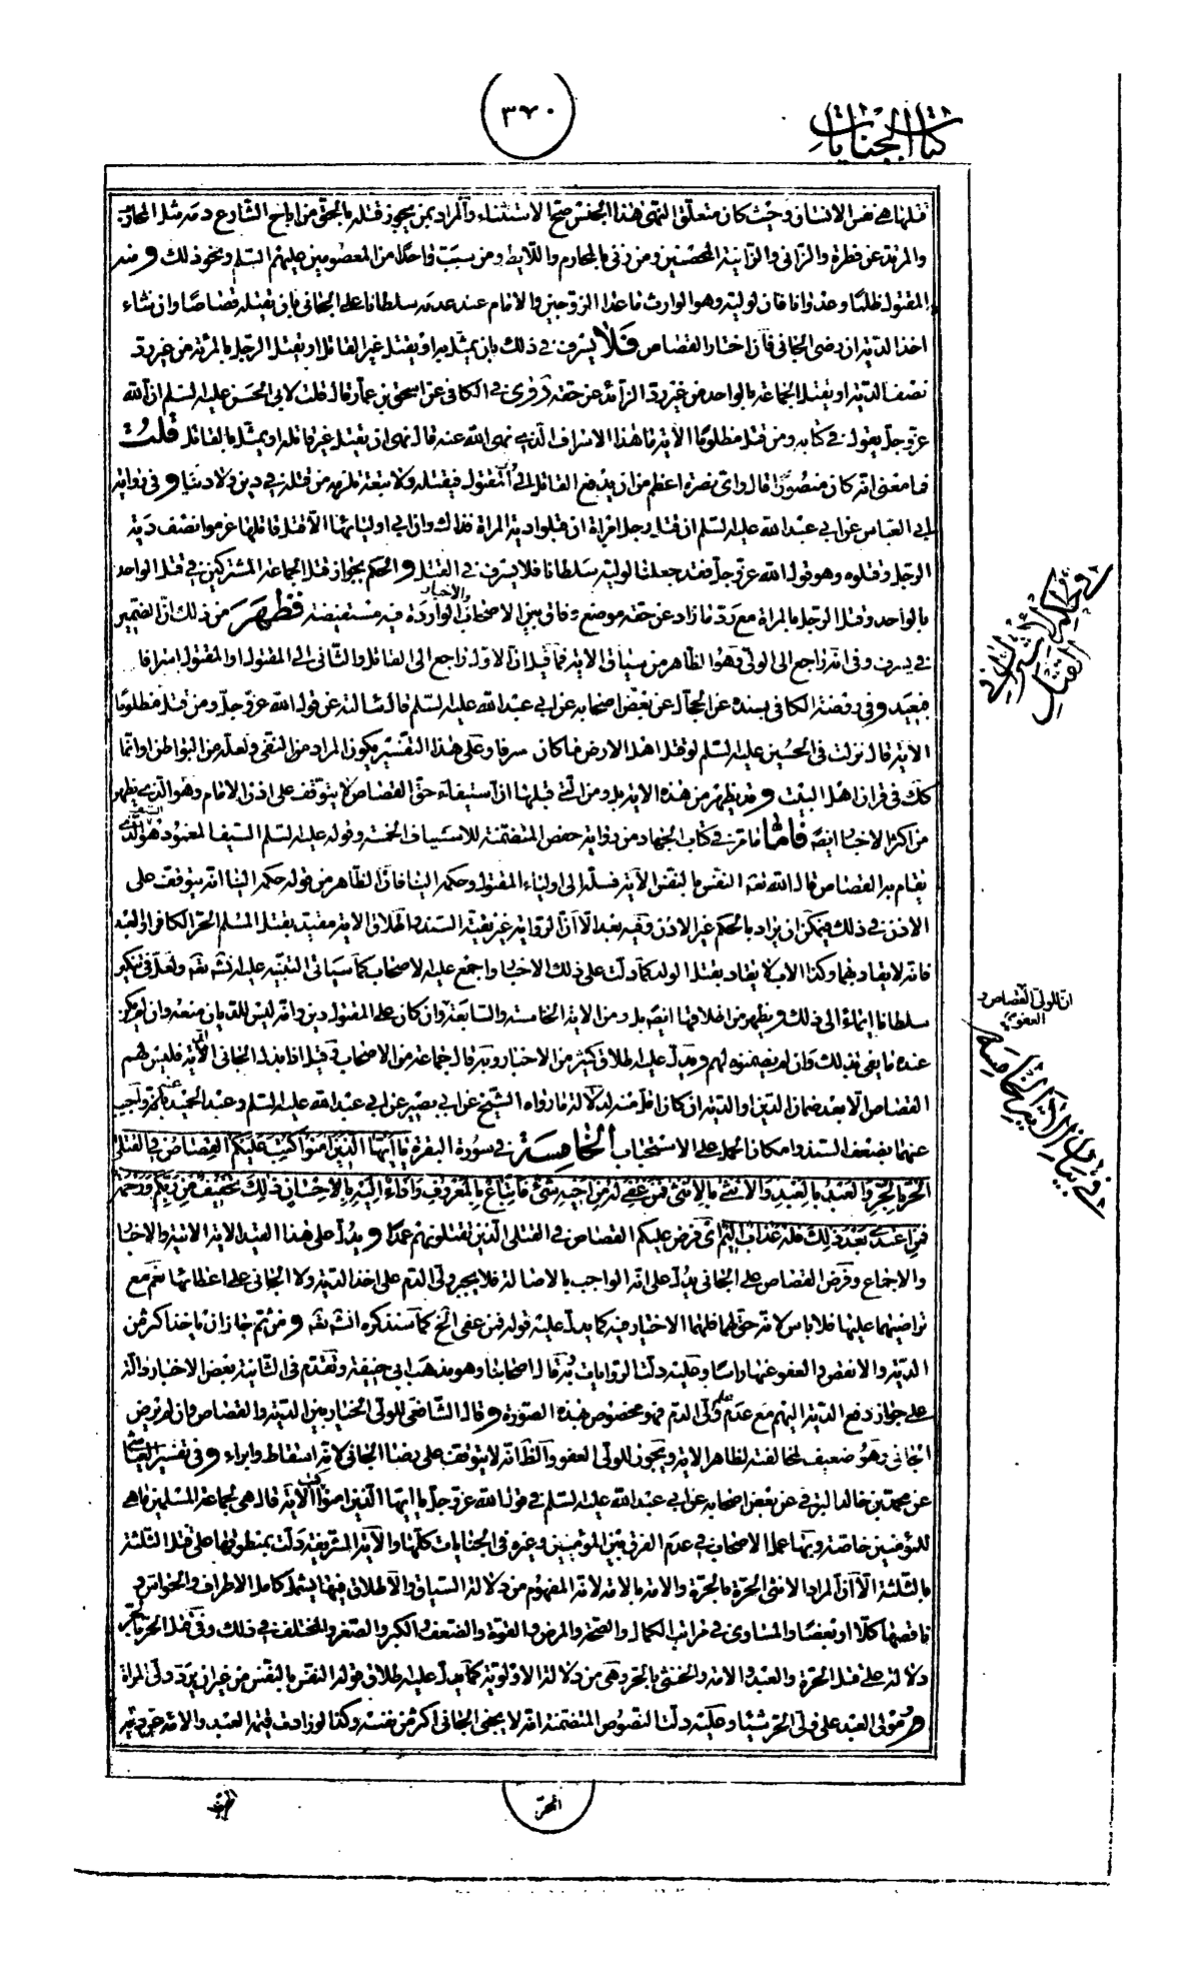 ٣٧٠
كتاب الجنايات
قتلها هي نفس الانسان وحيث كان متعلق النهى هذا الجنس صح الاستثناء والمراد بمن يجوز قتله بالحق من اباح الشارع دمه مثل المحارب
والمرتد عن فطرة والزانى والزانية المحصنين ومن زنى بالمحارم واللايط ومن سب واحدًا من المعصومين عليهم السلم ونحو ذلك ومن
المقتول ظلمًا وعدوانا فان لوليه وهو الوارث ما عدا الزوجين والامام عند عدمه سلطانا على الجانى بان يقتله قصاصًا وان شاء
اخذ الدية ان رضى الجانى فان اختار القصاص فلا يسرف في ذلك بان يمثل به او يقتل غير القاتل او يقتل الرجل بالمرئة من غير رد
نصف الدية او يقتل الجماعة بالواحد من غير رد الزائد عن حقه وروى في الكافى عن اسحق بن عمار قال قلت لابى الحسن عليه السلم ان الله
عز وجل يقول في كتابه ومن قتل مظلومًا الآية ما هذا الاسراف الذي نهى الله عنه قال نهى ان يقتل غير قاتله او يمثل بالقاتل قلت
فما معنى انه كان منصورًا قال واى نصرة اعظم من ان يدفع القاتل الى المقتول فيقتله ولا تبعة تلزمه من قتله في دين ولا دنيا وفي رواية
ابي العباس عن ابي عبد الله عليه السلم ان قتل رجل امرأة ان قبلوا دية المراة فذاك وان ابى اوليائها الا قتل قاتلها غرموا نصف دية
الرجل وقتلوه وهو قول الله عز وجل فقد جعلنا لوليه سلطانا فلا يسرف في القتل والحكم بجواز قتل الجماعة المشتركين في قتل الواحد
بالواحد وقتل الرجل بالمراة مع رد ما زاد عن حقه موضع وفاق بين الاصحاب والاخبار الواردة فيه مستفيضة فظهر من ذلك ان الضمير
في يسرف وفى انه راجع الى الولى وهو الظاهر من سياق الاية فما قيل ان الاول راجع الى القاتل والثانى الى المقتول او المقتول اسرافا
فبعيد وفي روضة الكافى بسنده عن الحجال عن بعض اصحابه عن ابي عبد الله عليه السلم قال سالته عن قول الله عز وجل ومن قتل مظلومًا
الاية قال نزلت فى الحسين عليه السلم لو قتل اهل الارض ما كان سرفا وعلى هذا التفسير يكون المراد من النفى ولعله من البواطن او انها
كك فى قران اهل البيت وقد يظهر من هذه الاية بل ومن التى قبلها ان استيفاء حق القصاص لا يتوقف على اذن الامام وهو الذي يظهر
من اكثر الاخبار ايضه فاما ما مر في كتاب الجهاد من رواية حفص المتضمنة للاسياف الخمسة وقوله عليه السلم السيف المغمود هو الذى
يقام به القصاص قال الله تعه النفس بالنفس الآية فسله الى اولياء المقتول وحكمه الينا فان الظاهر من قوله حكمه الينا انه يتوقف على
الاذن في ذلك فيمكن ان يراد بالحكم غير الاذن وفيه بعد الا ان الرواية غير نقية السند واطلاق الاية مقيد بقتل المسلم الحر الكافر او العبد
فانه لا يقاد بهما وكذا الاب لا يقاد بقتل الولد كما دلت على ذلك الاخبار واجمع عليه الاصحاب كما سياتى التنبيه عليه انشه تعه ولعل في تنكير
سلطانا ايماء الى ذلك ويظهر من اطلاقها ايضه بل ومن الاية الخامسة والسابعة وان كان على المقتول دين وانه ليس للديان منعه وان لم يكن
عنده ما يفى بذلك وان لم يضمنوه لهم ويدل عليه اطلاق كثير من الاخبار وبه قال جماعة من الاصحاب وقيل اذا بذل الجانى الدية فليس لهم
القصاص الا بعد ضمان الدين او الدية ان كان اقل منه لدلالة ما رواه الشيخ عن ابى بصير عن ابي عبد الله عليه السلم وعبد الحميد واجيب
عنهما بضعف السند وامكان الحمل على الاستحباب الخامسة في سورة البقرة يا ايها الذين امنوا كتب عليكم القصاص في القتلى
الحر بالحر والعبد بالعبد والانثى بالانثى فمن عفى له من اخيه شئ فاتباع بالمعروف واداء اليه بالاحسان ذلك تخفيف من ربكم ورحمة
فمن اعتدى بعد ذلك فله عذاب اليم اى فرض عليكم القصاص فى القتلى الذين تقتلونهم عمدًا ويدل على هذا القيد الاية الاتية والاخبار
والاجماع وفرض القصاص على الجانى يدل على انه الواجب بالاصالة فلا يجبر ولى الدم على اخذ الدية ولا الجانى على اعطائها نعم مع
تراضيهما عليها فلا باس لانه حق لهما فلهما الاختيار فيه كما يدل عليه قوله فمن عفى الخ كما سنذكره انشه تعه ومن ثم جاز ان ياخذ اكثر من
الدية والانقص والعفو عنها راسًا وعليه دلت الروايات وبه قال اصحابنا وهو مذهب ابي حنيفة وتقدم فى الثانية بعض الاخبار الدالة
على جواز دفع الدية اليهم مع عدم علم ولى الدم فهو مخصوص بهذه الصورة وقال الشافعى للولى الخيار بين الدية والقصاص وان لم يرض
الجانى وهو ضعيف لمخالفته لظاهر الاية ويجوز للولى العفو والظ انه لا يتوقف على رضا الجانى لانه اسقاط وابراء وفى تفسير العياشى
عن محمد بن خالد البرقى عن بعض اصحابه عن ابي عبد الله عليه السلم في قول الله عز وجل يا ايها الذين امنوا الاية قال هى لجماعة المسلمين ما هى
للمؤمنين خاصة وبها عمل الاصحاب في عدم الفرق بين المؤمنين وغيره فى الجنايات كلها والآية الشريفة دلت بمنطوقها على قتل الثلثة
بالثلثة الا ان المراد الانثى الحرة بالحرة والامة بالامة لانه المفهوم من دلالة السياق والاطلاق فيها يشمل كامل الاطراف والحواس و
ناقصها كلا او بعضًا والمساوى في مراتب الكمال والصحة والمرض والقوة والضعف والكبر والصغر والمختلف في ذلك وفى قتل الحر بالحر
دلالة على قتل الحرة والعبد والامة والخنثى بالحر وهى من دلالة الاولوية كما يدل عليه اطلاق قوله النفس بالنفس من غير ان يرد ولى المراة
ومولى العبد على ولى الحر شيئا وعليه دلت النصوص المتضمنة انه لا يجنى الجانى اكثر من نفسه وكذا لو زادت قيمة العبد والامة عن دية
في حكم المشتركين في القتل
ان للولى القصاص و
العفو
في بيان الآية الخامسة
الحر